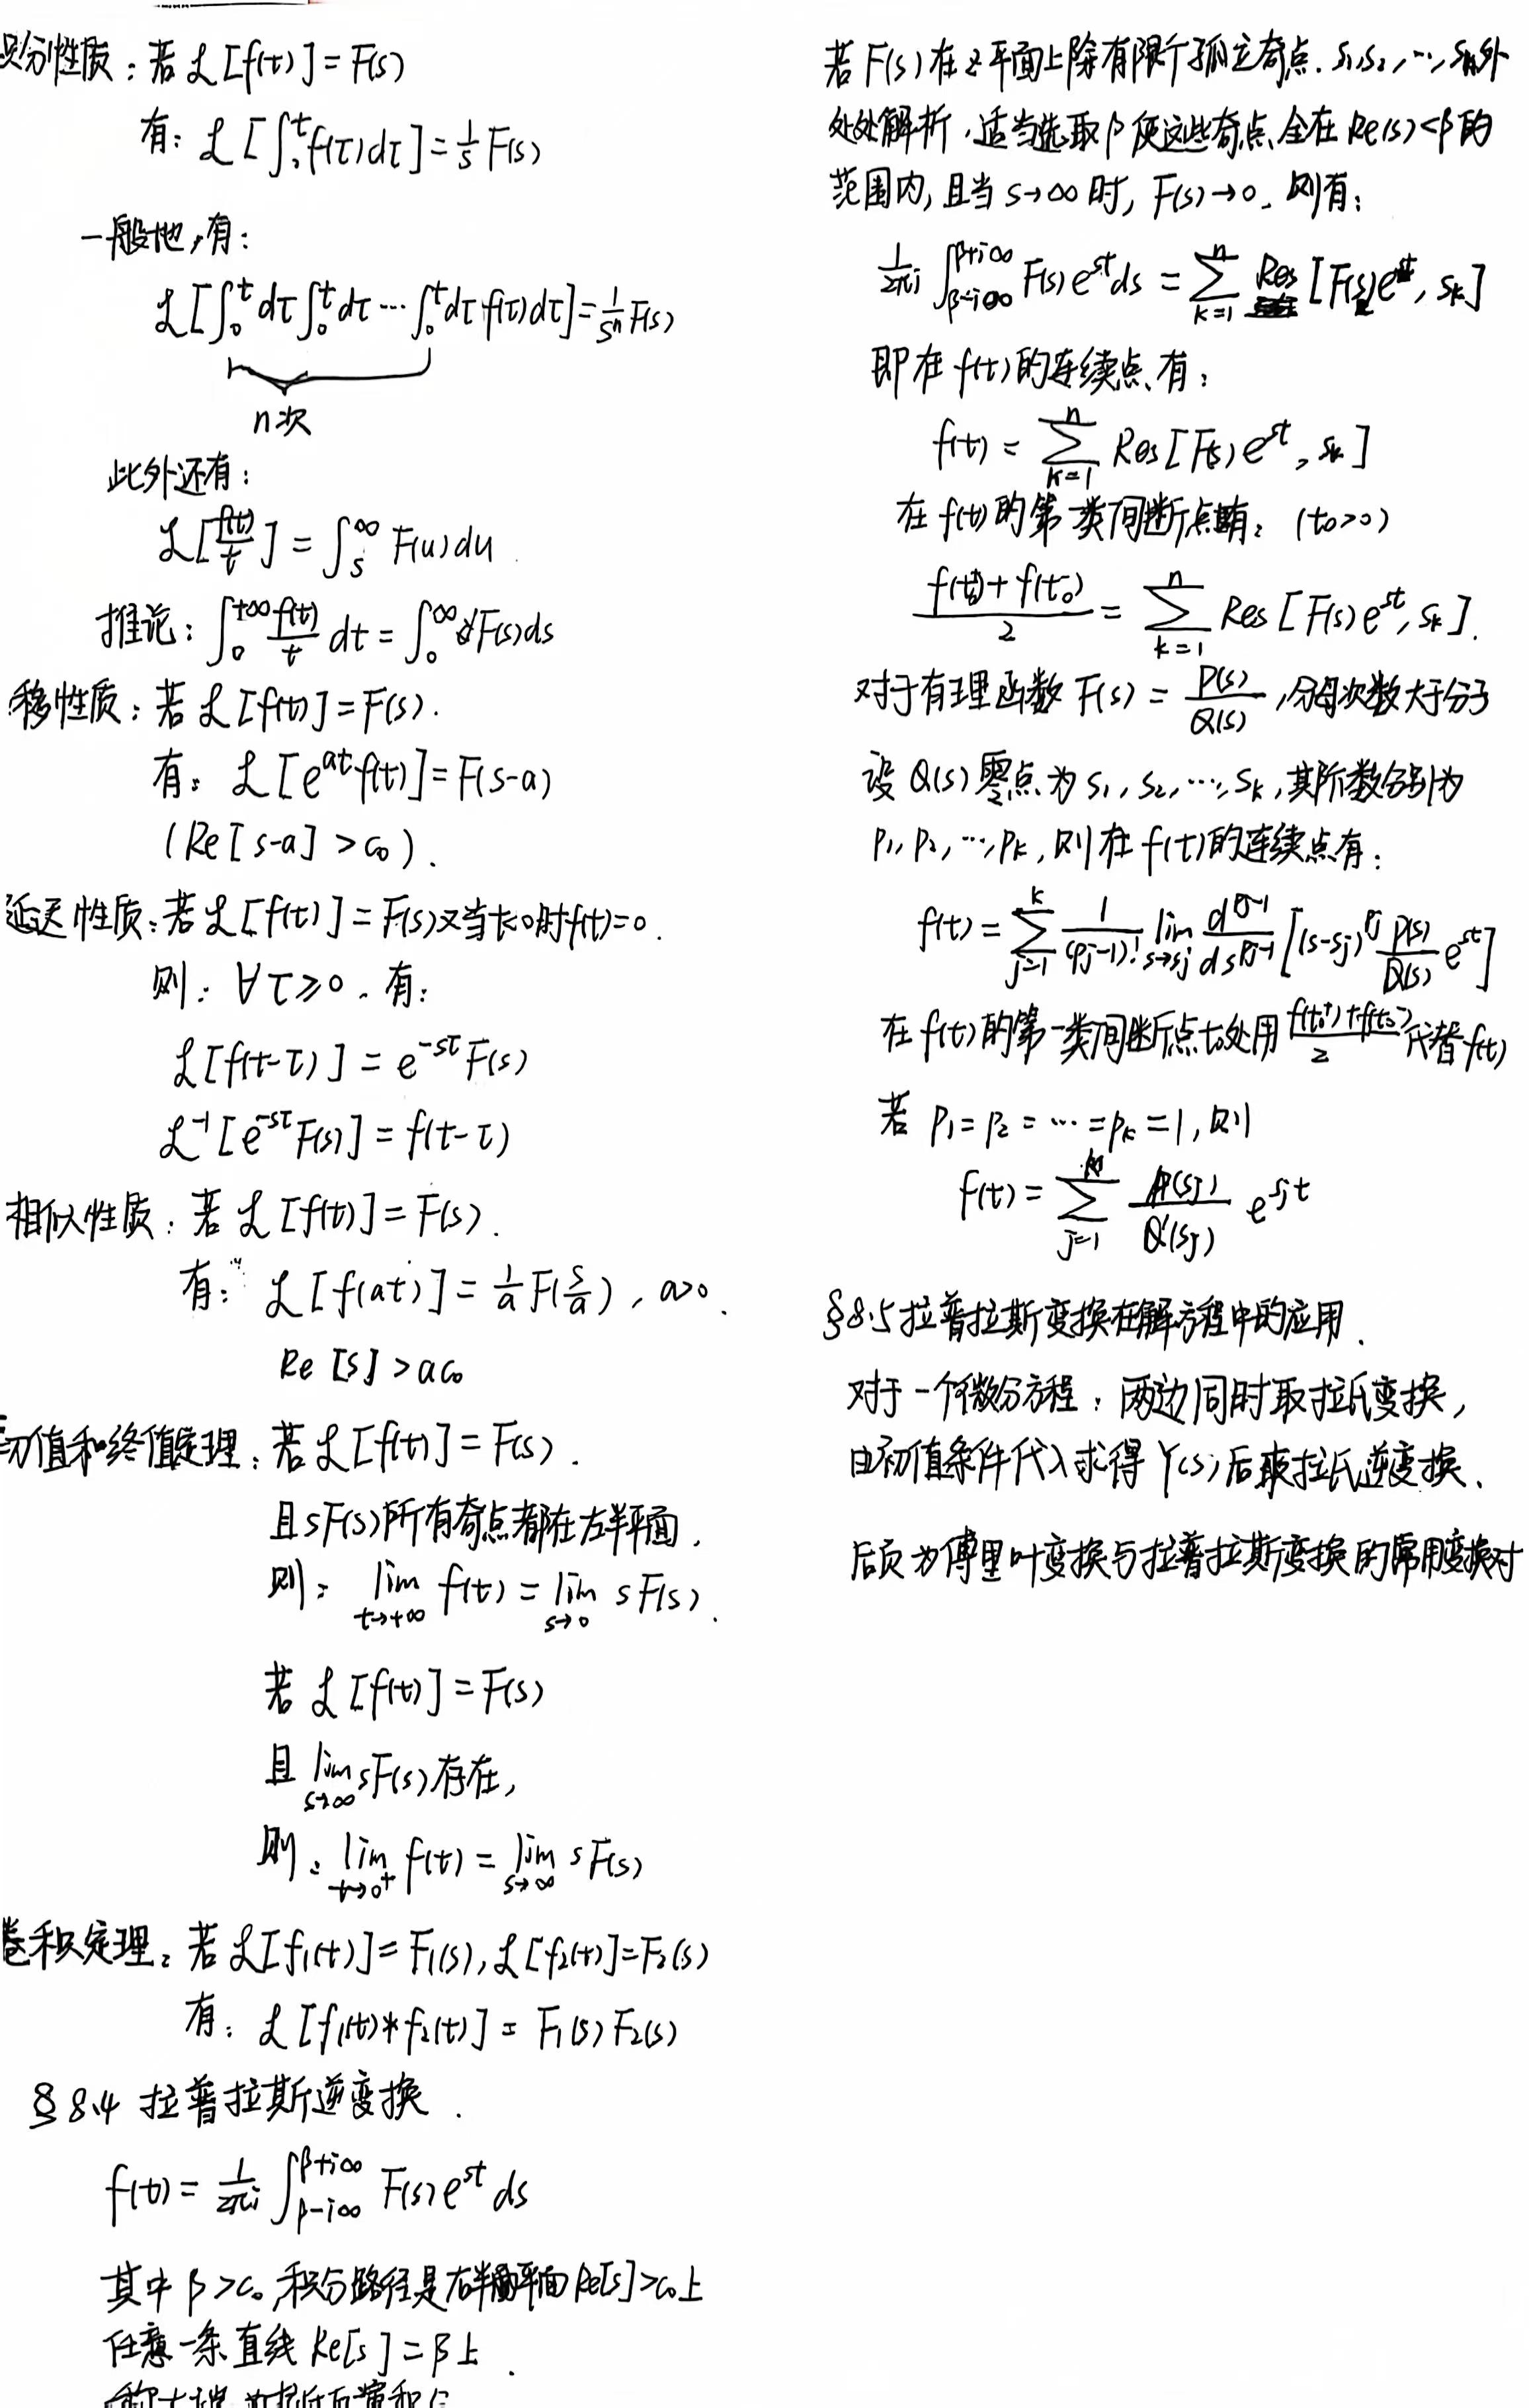 积分性质：若 ℒ[f(t)] = F(s)
有：ℒ[∫₀ᵗ f(τ)dτ] = 1/s F(s)
一般地，有：
ℒ[∫₀ᵗ dτ ∫₀ᵗ dτ ⋯ ∫₀ᵗ dτ f(τ)dτ] = 1/sⁿ F(s)
n次
此外还有：
ℒ[f(t)/t] = ∫ₛ^∞ F(u)du
推论：∫₀^{+∞} f(t)/t dt = ∫₀^∞ F(s)ds
移性质：若 ℒ[f(t)] = F(s).
有：ℒ[e^{at} f(t)] = F(s-a)
(Re[s-a] > c₀).
延迟性质：若 ℒ[f(t)] = F(s) 又当 t<0 时 f(t)=0.
则：∀τ≥0，有：
ℒ[f(t-τ)] = e^{-sτ} F(s)
ℒ⁻¹[e^{-sτ} F(s)] = f(t-τ)
相似性质：若 ℒ[f(t)] = F(s).
有：ℒ[f(at)] = 1/a F(s/a)，a>0.
Re[s] > ac₀
初值和终值定理：若 ℒ[f(t)] = F(s).
且 sF(s) 所有奇点都在左半平面，
则：lim_{t→+∞} f(t) = lim_{s→0} sF(s).
若 ℒ[f(t)] = F(s)
且 lim_{s→∞} sF(s) 存在，
则：lim_{t→0⁺} f(t) = lim_{s→∞} sF(s)
卷积定理：若 ℒ[f₁(t)] = F₁(s), ℒ[f₂(t)] = F₂(s)
有：ℒ[f₁(t)*f₂(t)] = F₁(s)F₂(s)
§8.4 拉普拉斯逆变换.
f(t) = 1/2πi ∫_{β-i∞}^{β+i∞} F(s)e^{st} ds
其中 β>c₀，积分路径是右半平面 Re[s]>c₀ 上
任意一条直线 Re[s] = β 上.
若 F(s) 在 z 平面上除有限个孤立奇点 s₁,s₂,⋯,sₙ外
处处解析，适当选取 β 使这些奇点全在 Re(s)<β 的
范围内，且当 s→∞ 时，F(s)→0，则有：
1/2πi ∫_{β-i∞}^{β+i∞} F(s)e^{st}ds = ∑_{k=1}^{n} Res[F(s)e^{st}, sₖ]
即在 f(t) 的连续点有：
f(t) = ∑_{k=1}^{n} Res[F(s)e^{st}, sₖ]
在 f(t) 的第一类间断点有：(t₀>0)
(f(t₀⁺)+f(t₀⁻))/2 = ∑_{k=1}^{n} Res[F(s)e^{st}, sₖ].
对于有理函数 F(s) = P(s)/Q(s)，分母次数大于分子
设 Q(s) 零点为 s₁,s₂,⋯,sₖ，其阶数分别为
p₁,p₂,⋯,pₖ，则在 f(t) 的连续点有：
f(t) = ∑_{j=1}^{k} 1/(pⱼ-1)! lim_{s→sⱼ} d^{pⱼ-1}/ds^{pⱼ-1} [(s-sⱼ)^{pⱼ} P(s)/Q(s) e^{st}]
在 f(t) 的第一类间断点 t₀ 处用 (f(t₀⁺)+f(t₀⁻))/2 代替 f(t)
若 p₁=p₂=⋯=pₖ=1，则
f(t) = ∑_{j=1}^{k} P(sⱼ)/Q'(sⱼ) e^{sⱼt}
§8.5 拉普拉斯变换在解方程中的应用.
对于一个微分方程：两边同时取拉氏变换，
由初值条件代入求得 Y(s) 后取拉氏逆变换.
后页为傅里叶变换与拉普拉斯变换的常用变换对